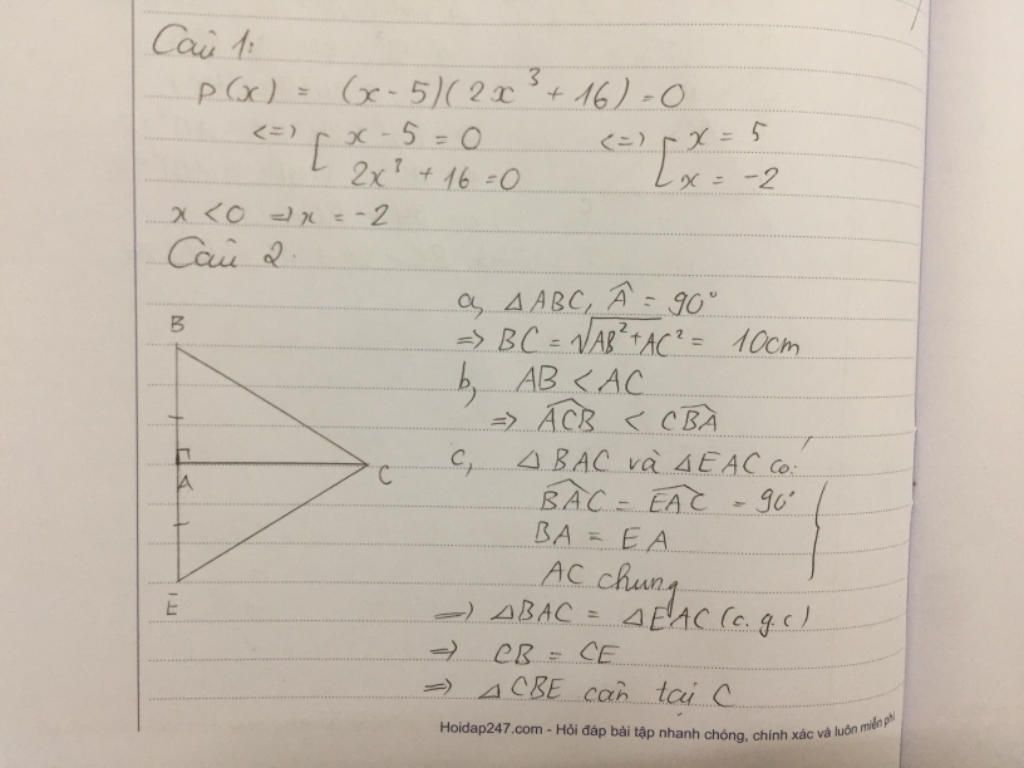 Câu 1:
P(x) = (x - 5)(2x³ + 16) = 0
<=> [ x - 5 = 0 <=> [ x = 5
2x³ + 16 = 0 x = -2
x < 0 => x = -2
Câu 2.
a, △ABC, Â = 90°
=> BC = √AB² + AC² = 10cm
b, AB < AC
=> ACB < CBA
c, △BAC và △EAC có:
BAC = EAC = 90°
BA = EA
AC chung
=> △BAC = △EAC (c.g.c)
=> CB = CE
=> △CBE cân tại C
B
A
C
E
Hoidap247.com - Hỏi đáp bài tập nhanh chóng, chính xác và luôn miễn phí